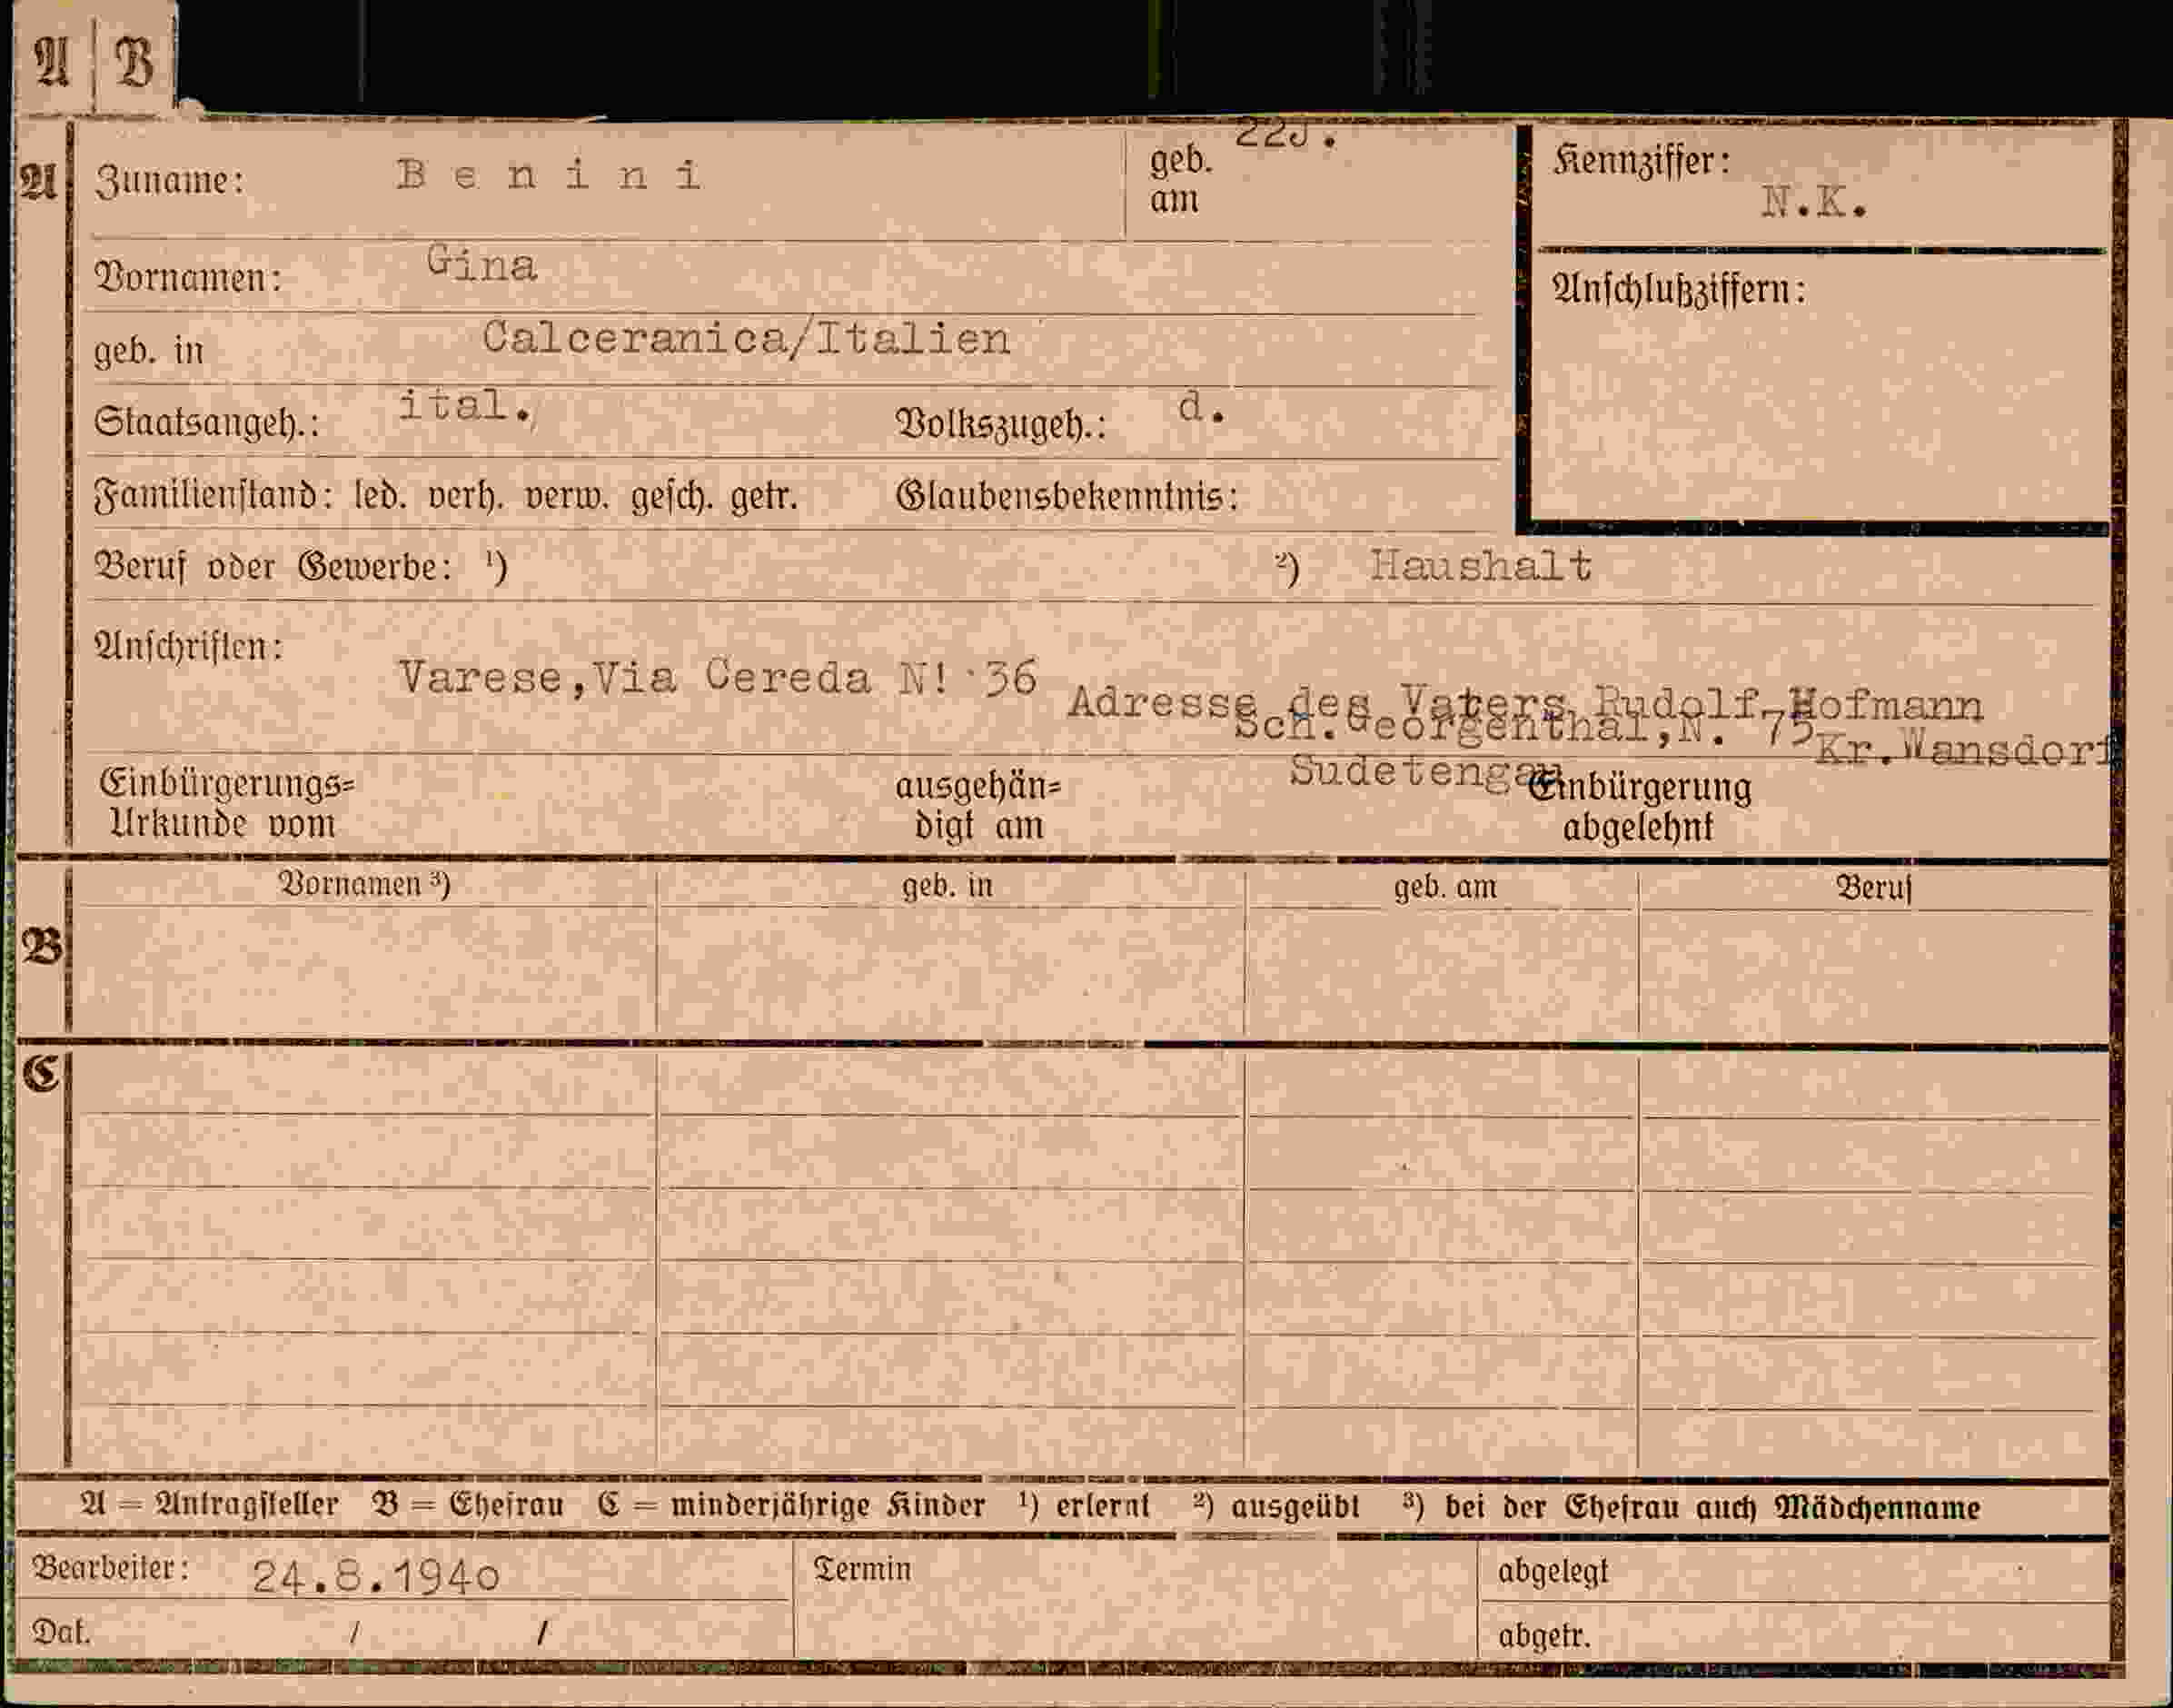 A B
A Zuname: Benini geb. am 22J. Kennziffer: N.K.
Vornamen: Gina
Anschlußziffern:
geb. in Calceranica/Italien
Staatsangeh.: ital. Volkszugeh.: d.
Familienstand: led. verh. verw. gesch. getr. Glaubensbekenntnis:
Beruf oder Gewerbe: ¹) ²) Haushalt
Anschriften:
Varese,Via Cereda N! 36
Adresse des Vaters Rudolf Hofmann
Sch.Georgenthal,N. 75
Kr.Wansdorf
Sudetengau
Einbürgerungs= Urkunde vom ausgehän= digt am Einbürgerung abgelehnt
Vornamen ³) geb. in geb. am Beruf
B
C
A = Antragsteller B = Ehefrau C = minderjährige Kinder ¹) erlernt ²) ausgeübt ³) bei der Ehefrau auch Mädchenname
Bearbeiter: 24.8.194o Termin abgelegt
Dat. / / abgetr.